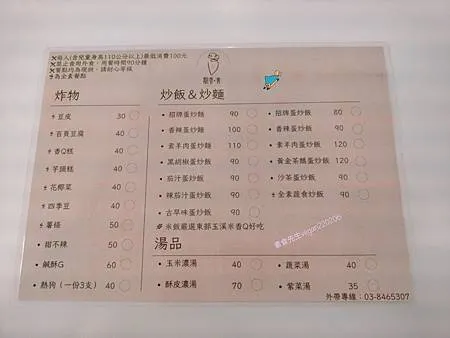 ✕每人(含兒童身高110公分以上)最低消費100元
✕禁止食用外食，用餐時間90分鐘
✕餐點均為現做，請耐心等候
為全素餐點
炸物
豆皮 30
百頁豆腐 40
香Q糕 40
芋頭糕 40
花椰菜 40
四季豆 40
薯條 50
• 甜不辣 50
• 鹹酥G 60
• 熱狗（一份3支） 40
炒飯＆炒麵
• 招牌蛋炒飯 90
• 香辣蛋炒麵 100
• 素羊肉蛋炒麵 110
• 黑胡椒蛋炒飯 90
• 茄汁蛋炒飯 90
• 辣茄汁蛋炒飯 90
• 古早味蛋炒飯 90
• 招牌蛋炒飯 80
• 香辣蛋炒飯 90
• 素羊肉蛋炒飯 120
• 黃金茶鵝蛋炒飯 120
• 沙茶蛋炒飯 90
• 全素蔬食炒飯 90
# 米飯嚴選東部玉溪米香Q好吃
湯品
• 玉米濃湯 40
• 酥皮濃湯 70
• 蔬菜湯 40
• 紫菜湯 35
外帶專線：03-8465307
素食先生vegan220206